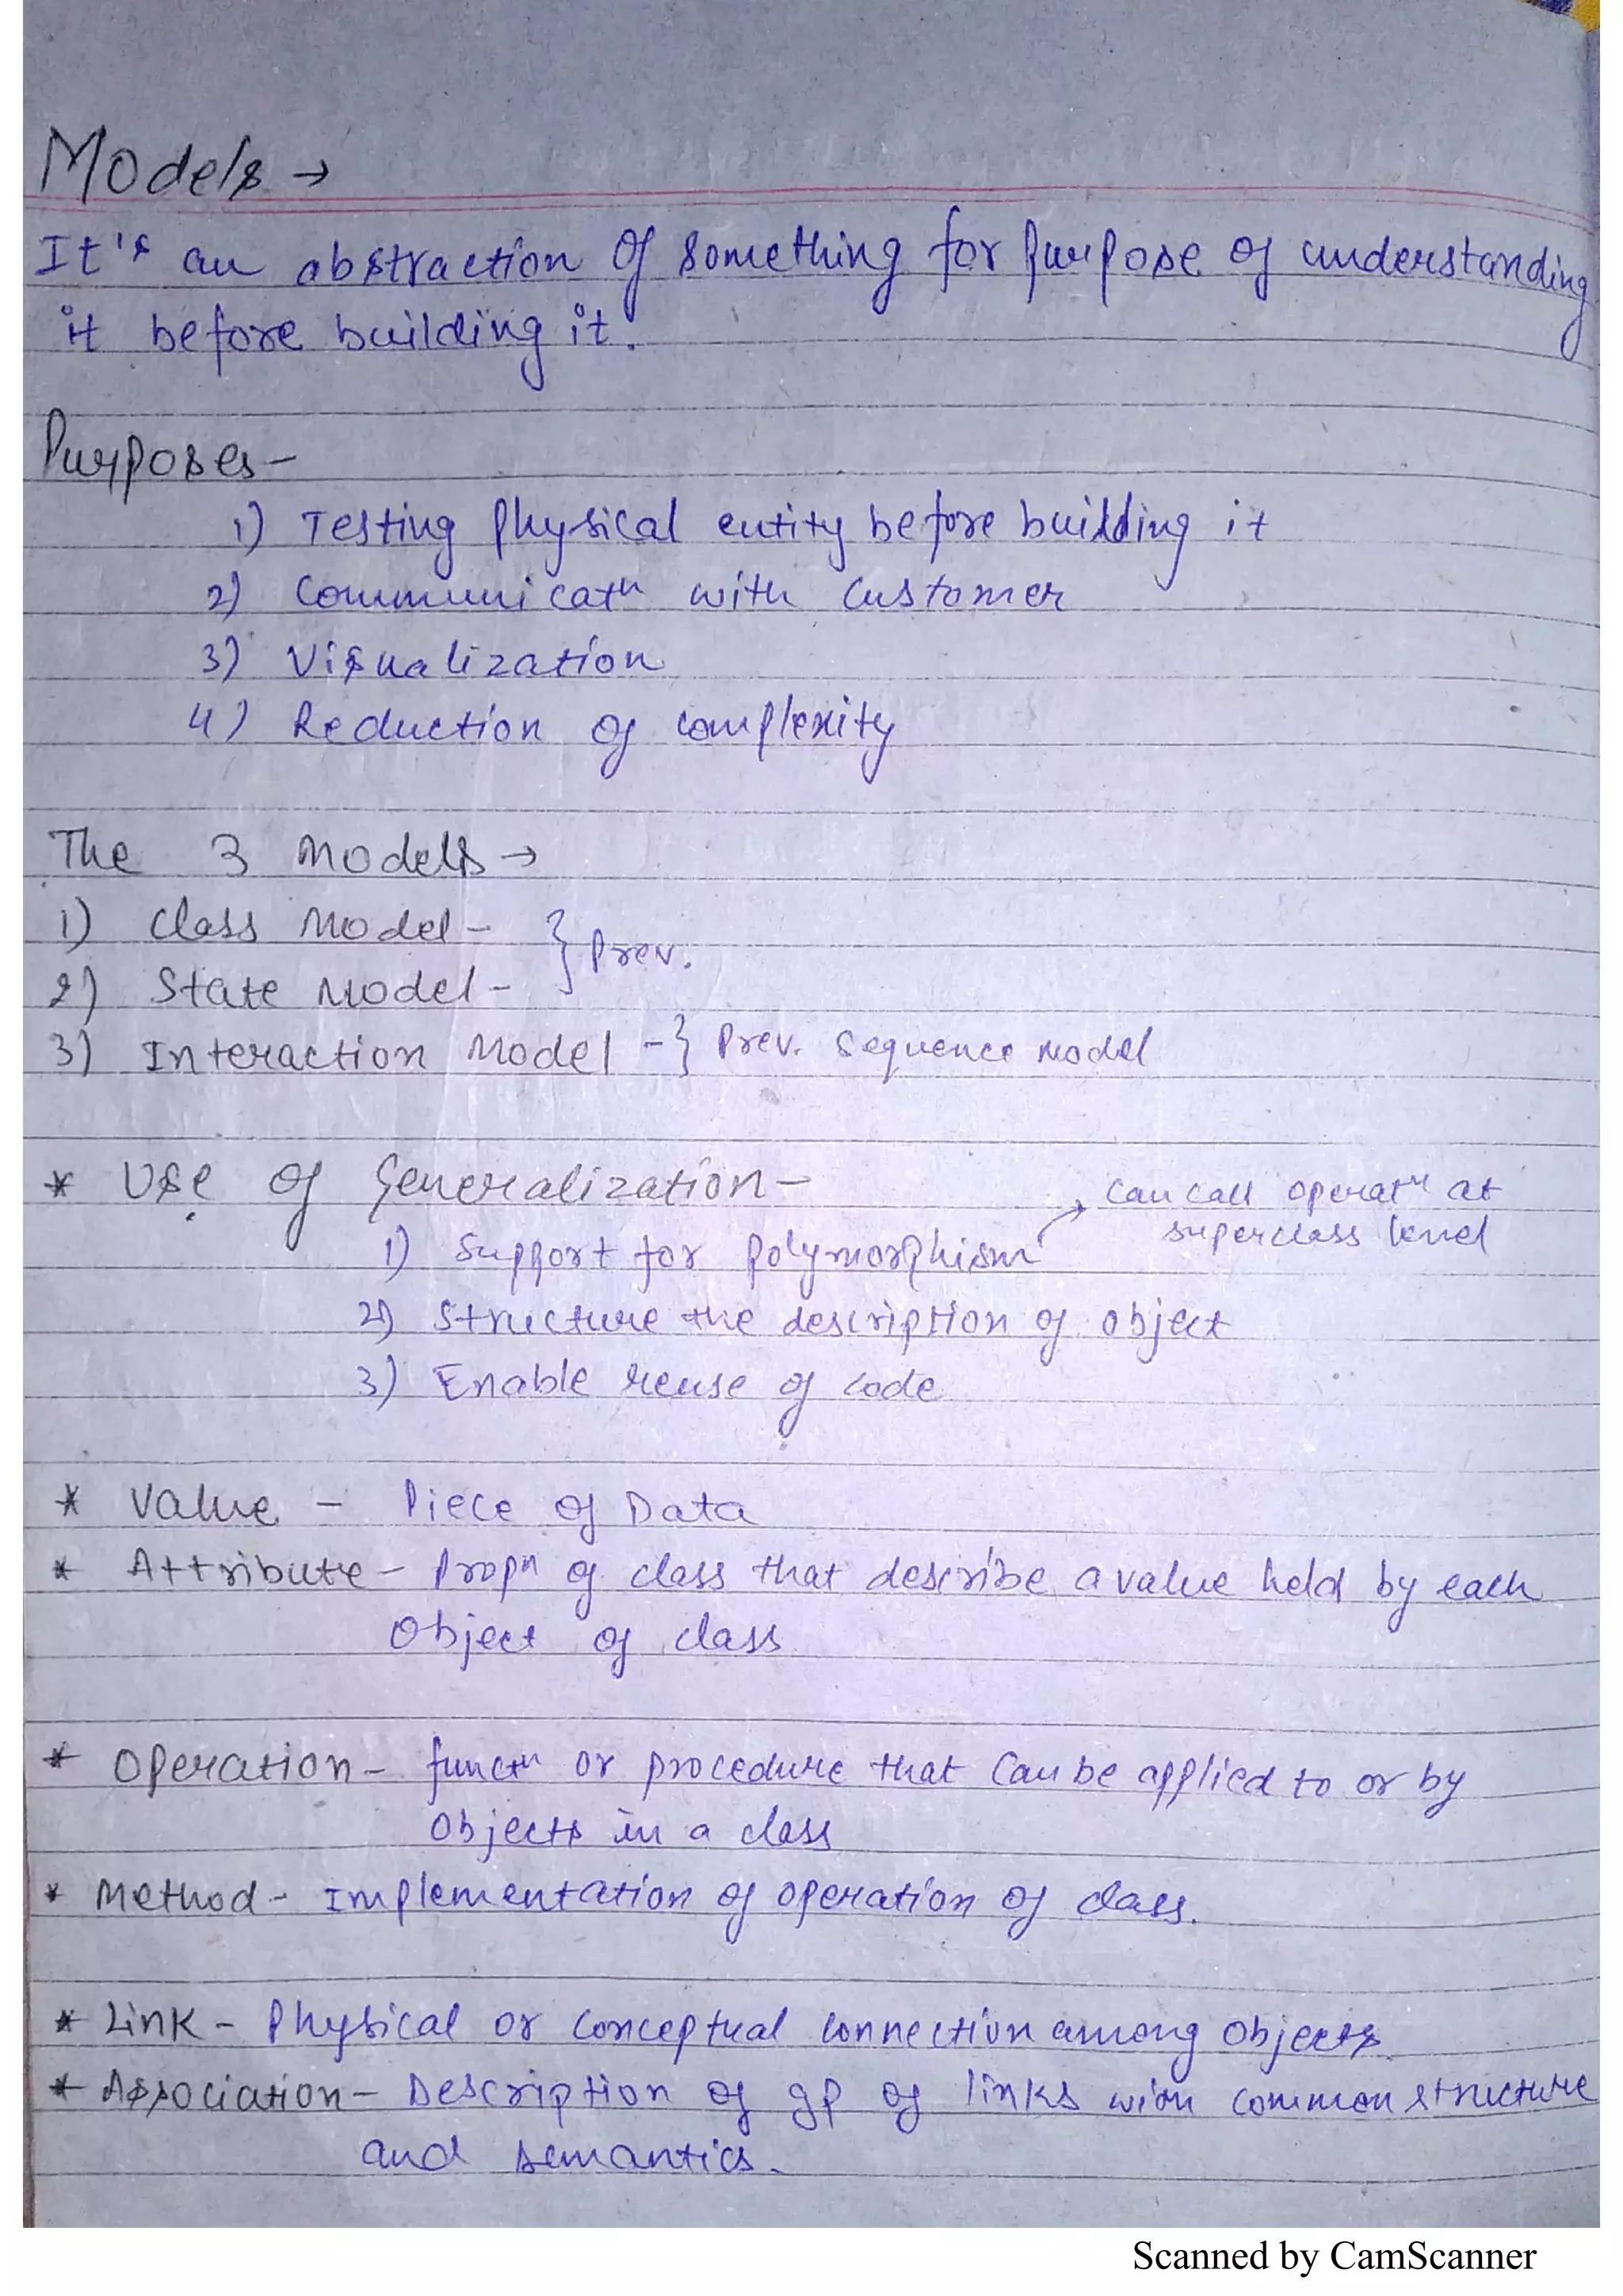 Models →
It's an abstraction of something for purpose of understanding
it before building it.
Purposes-
1) Testing physical entity before building it
2) Communicatn with Customer
3) Visualization
4) Reduction of complexity
The 3 Models →
1) Class Model -
} Prev.
2) State Model -
3) Interaction Model - } Prev. Sequence Model
* Use of Generalization -
→ Can call operatn at
superclass level
1) Support for polymorphism
2) Structure the description of object
3) Enable reuse of code
* Value - Piece of Data
* Attribute - Propn of class that describe a value held by each
Object of class
* Operation - functn or procedure that can be applied to or by
Objects in a class
* Method - Implementation of operation of class.
* Link - Physical or Conceptual connection among Objects.
* Association - Description of gp of links with common structure
and semantics.
Scanned by CamScanner